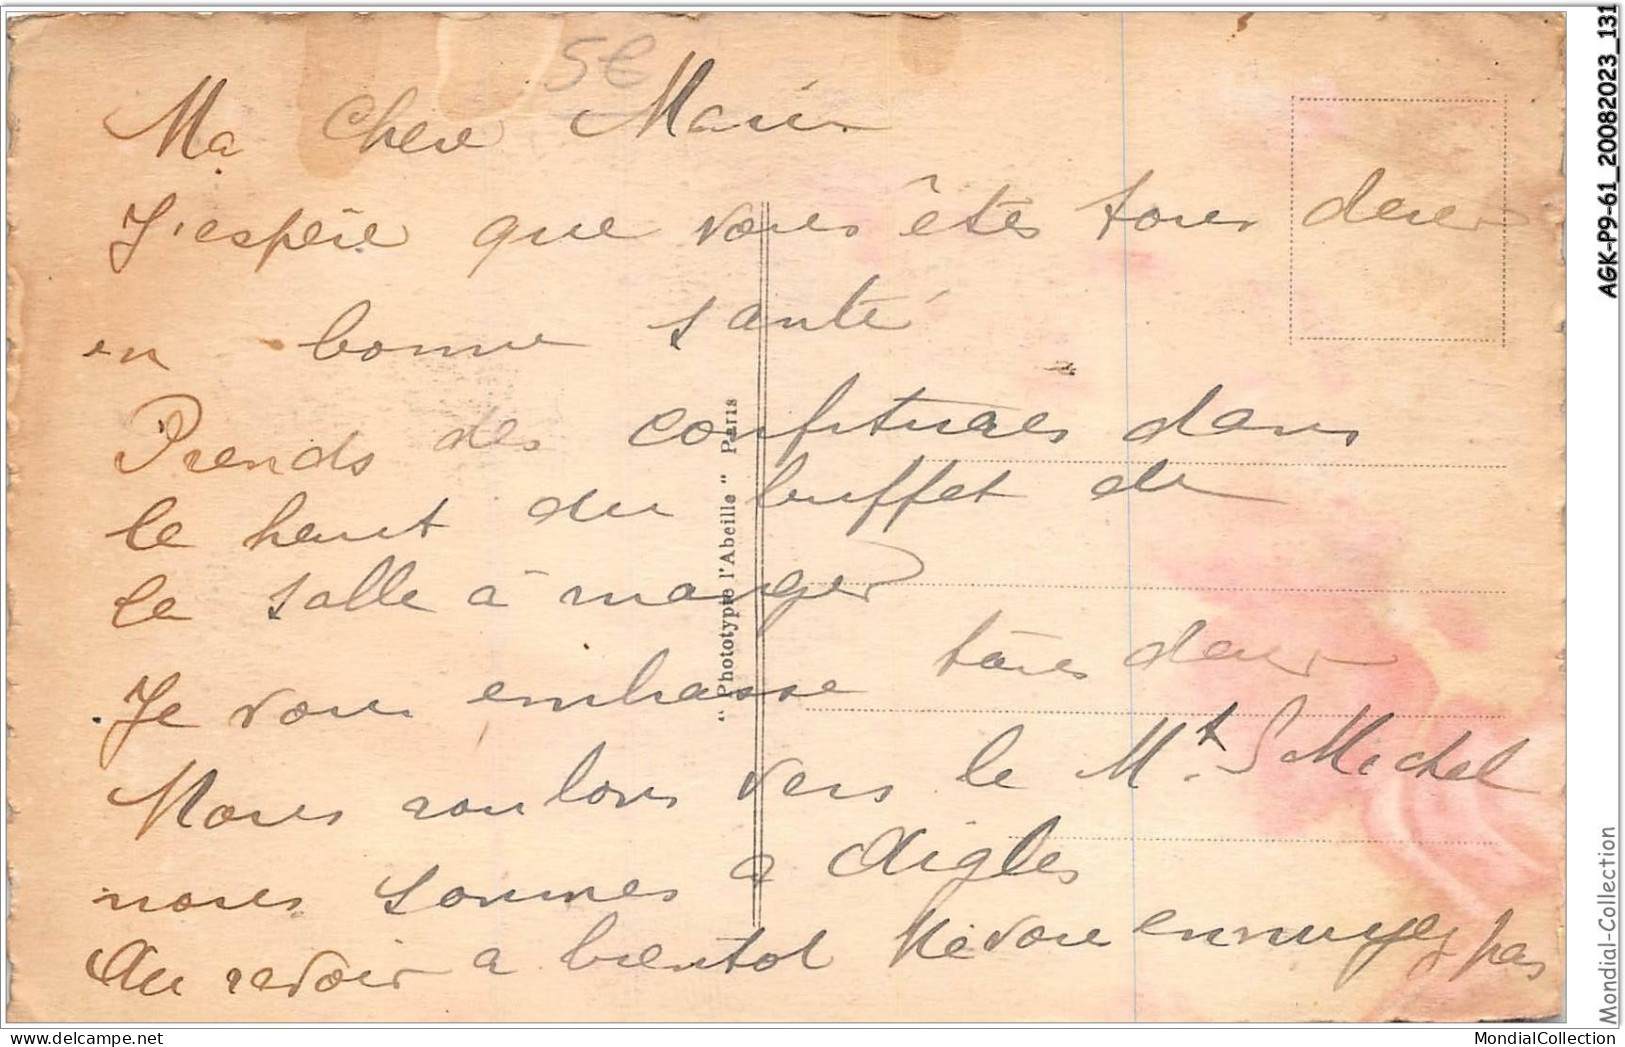 5€
Ma Chere Marie
J'espère que vous êtes tous deux
en bonne santé
Prends des confitures dans
le haut du buffet de
la salle à manger
Je vous embrasse tous deux
Nous roulons vers le Mt S Michel
nous sommes a Aigles
Au revoir a bientot Ne vous ennuyez pas
"Phototypie l'Abeille" Paris
AGK-P9-61_20082023_131
Mondial-Collection
MondialCollection